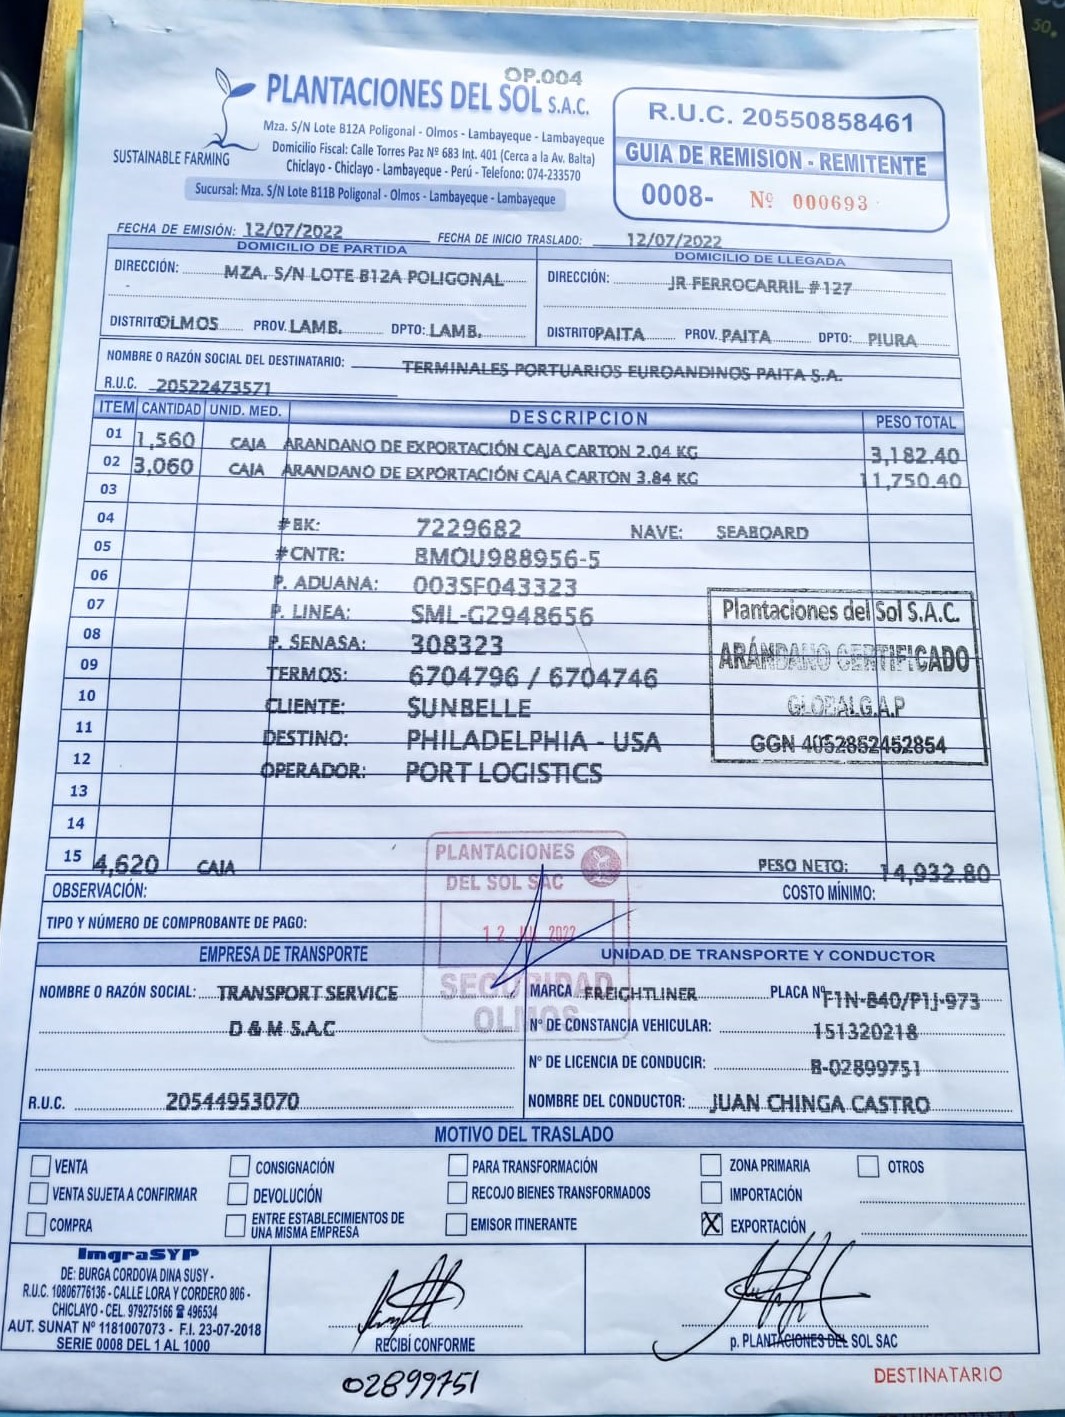 OP.004
PLANTACIONES DEL SOL S.A.C.
SUSTAINABLE FARMING
Mza. S/N Lote B12A Poligonal - Olmos - Lambayeque - Lambayeque
Domicilio Fiscal: Calle Torres Paz Nº 683 Int. 401 (Cerca a la Av. Balta)
Chiclayo - Chiclayo - Lambayeque - Perú - Telefono: 074-233570
Sucursal: Mza. S/N Lote B11B Poligonal - Olmos - Lambayeque - Lambayeque
R.U.C. 20550858461
GUIA DE REMISION - REMITENTE
0008- Nº 000693
FECHA DE EMISIÓN: 12/07/2022 FECHA DE INICIO TRASLADO: 12/07/2022
DOMICILIO DE PARTIDA
DIRECCIÓN: MZA. S/N LOTE B12A POLIGONAL
DISTRITO OLMOS PROV. LAMB. DPTO: LAMB.
DOMICILIO DE LLEGADA
DIRECCIÓN: JR FERROCARRIL #127
DISTRITO PAITA PROV. PAITA DPTO: PIURA
NOMBRE O RAZÓN SOCIAL DEL DESTINATARIO: TERMINALES PORTUARIOS EUROANDINOS PAITA S.A.
R.U.C. 20522473571
ITEM CANTIDAD UNID. MED. DESCRIPCION PESO TOTAL
01 1,560 CAJA ARANDANO DE EXPORTACIÓN CAJA CARTON 2.04 KG 3,182.40
02 3,060 CAJA ARANDANO DE EXPORTACIÓN CAJA CARTON 3.84 KG 11,750.40
03
04 #BK: 7229682 NAVE: SEABOARD
05 #CNTR: BMOU988956-5
06 P. ADUANA: 003SF043323
07 P. LINEA: SML-G2948656
08 P. SENASA: 308323
09 TERMOS: 6704796 / 6704746
10 CLIENTE: SUNBELLE
11 DESTINO: PHILADELPHIA - USA
12 OPERADOR: PORT LOGISTICS
13
14
Plantaciones del Sol S.A.C.
ARÁNDANO CERTIFICADO
GLOBALG.A.P
GGN 4052852452854
15 4,620 CAJA PESO NETO: 14,932.80
OBSERVACIÓN: COSTO MÍNIMO:
TIPO Y NÚMERO DE COMPROBANTE DE PAGO:
PLANTACIONES
DEL SOL SAC
12 JUL 2022
SEGURIDAD
OLMOS
EMPRESA DE TRANSPORTE
NOMBRE O RAZÓN SOCIAL: TRANSPORT SERVICE
D & M S.A.C
R.U.C. 20544953070
UNIDAD DE TRANSPORTE Y CONDUCTOR
MARCA FREIGHTLINER PLACA Nº F1N-840/P1J-973
Nº DE CONSTANCIA VEHICULAR: 151320218
Nº DE LICENCIA DE CONDUCIR: B-02899751
NOMBRE DEL CONDUCTOR: JUAN CHINGA CASTRO
MOTIVO DEL TRASLADO
VENTA CONSIGNACIÓN PARA TRANSFORMACIÓN ZONA PRIMARIA OTROS
VENTA SUJETA A CONFIRMAR DEVOLUCIÓN RECOJO BIENES TRANSFORMADOS IMPORTACIÓN
COMPRA ENTRE ESTABLECIMIENTOS DE
UNA MISMA EMPRESA EMISOR ITINERANTE X EXPORTACIÓN
ImgraSYP
DE: BURGA CORDOVA DINA SUSY -
R.U.C. 10806776136 - CALLE LORA Y CORDERO 806 -
CHICLAYO - CEL. 979275166 ☎ 496534
AUT. SUNAT Nº 1181007073 - F.I. 23-07-2018
SERIE 0008 DEL 1 AL 1000
RECIBÍ CONFORME
02899751
p. PLANTACIONES DEL SOL SAC
DESTINATARIO